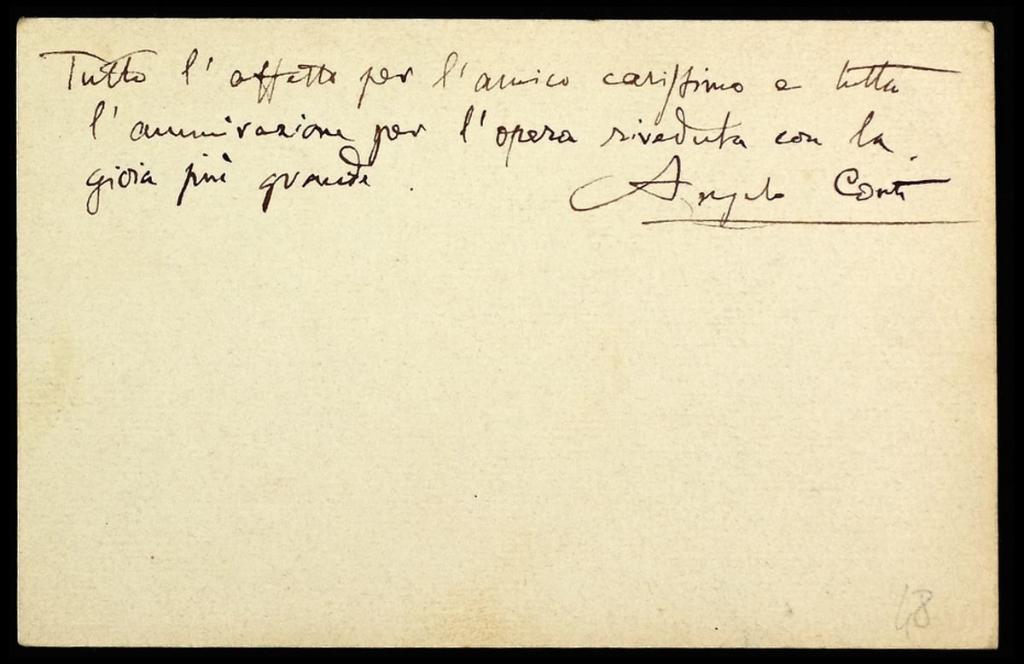 Tutto l'affetto per l'amico carissimo e tutta
l'ammirazione per l'opera riveduta con la
gioia più grande.
Angelo Conti
48